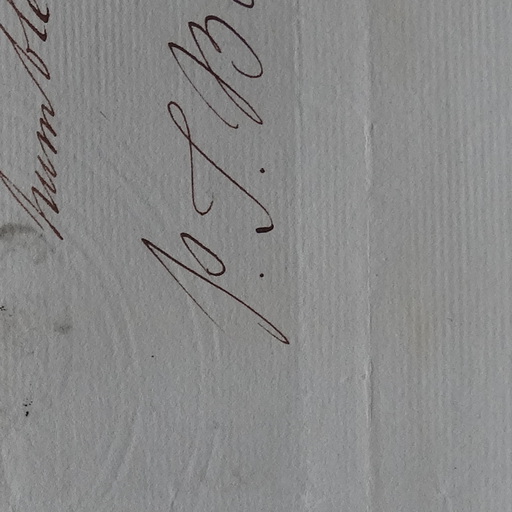 humble
P. T. B